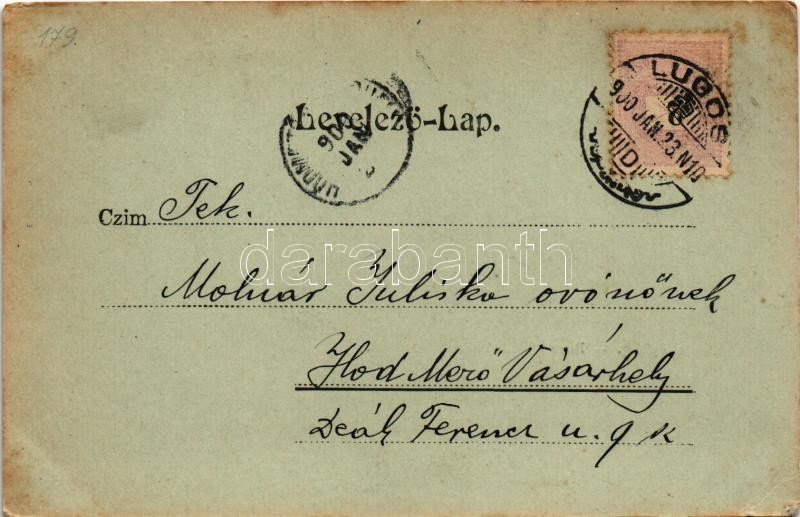 179.
LUGOS
900 JAN. 23. N10
D
Levelező-Lap.
HÓDME
900
JAN
Czim Tek.
Molnár Juliska ovónőnek
Hod Mező Vásárhely
Deák Ferencz u. 9 k
darabanth